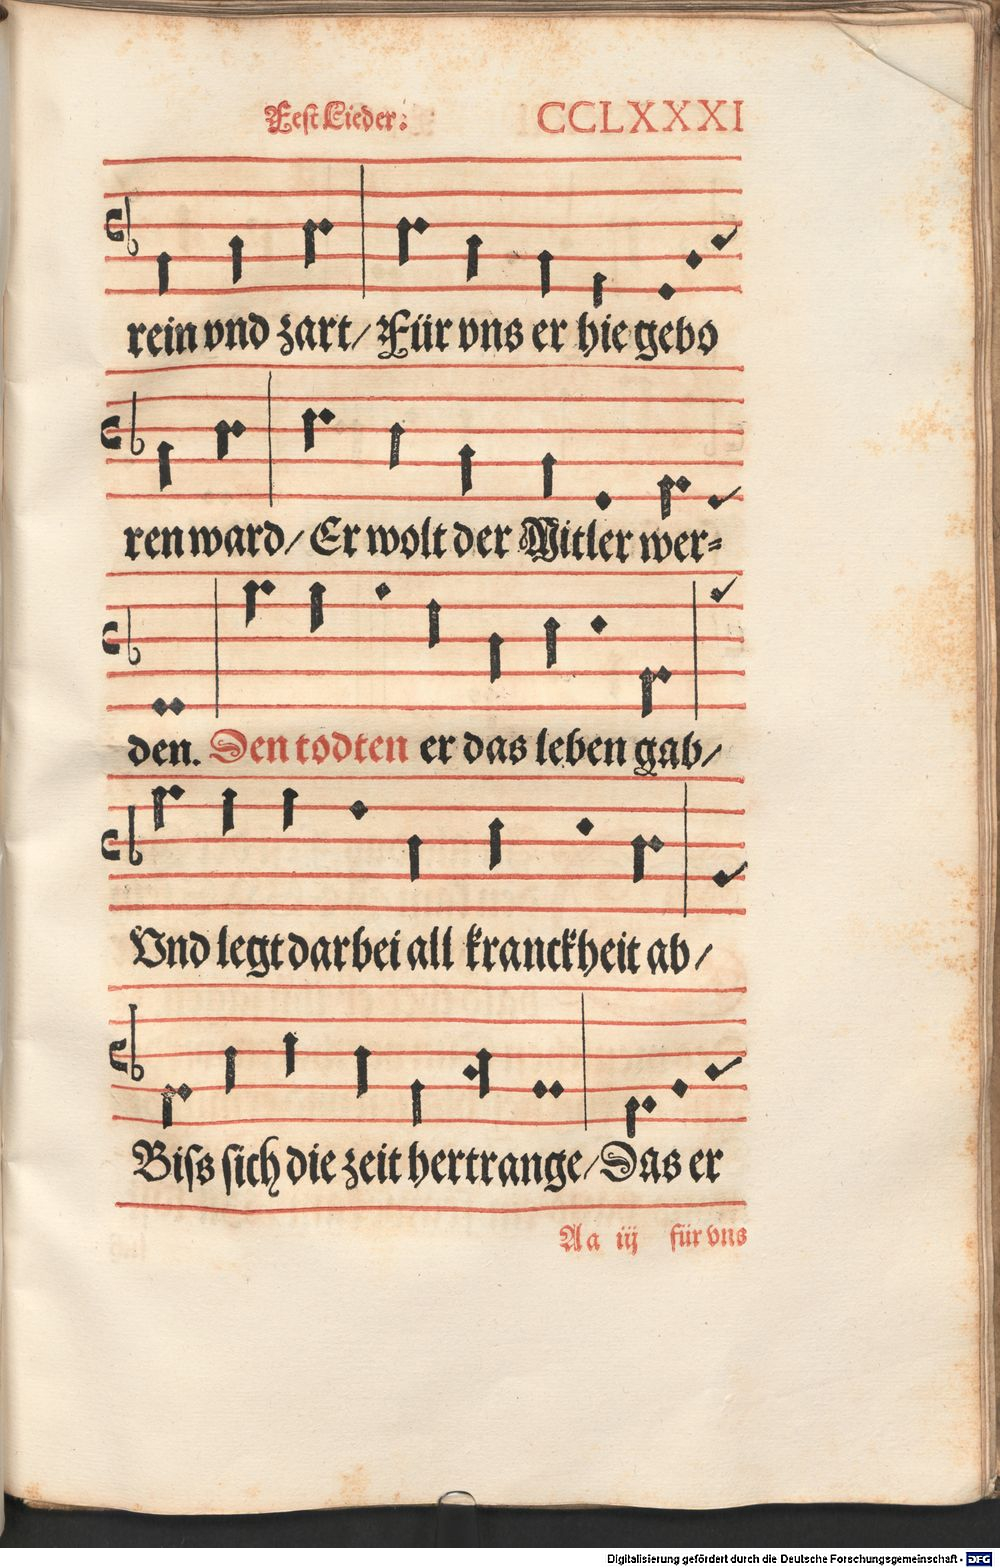 Fest Lieder: CCLXXXI
rein vnd zart/ Für vns er hie gebo
ren ward/ Er wolt der Mitler wer⸗
den. Den todten er das leben gab/
Vnd legt darbei all kranckheit ab/
Biſs ſich die zeit hertrange/ Das er
Aa iij für vns
Digitalisierung gefördert durch die Deutsche Forschungsgemeinschaft - DFG